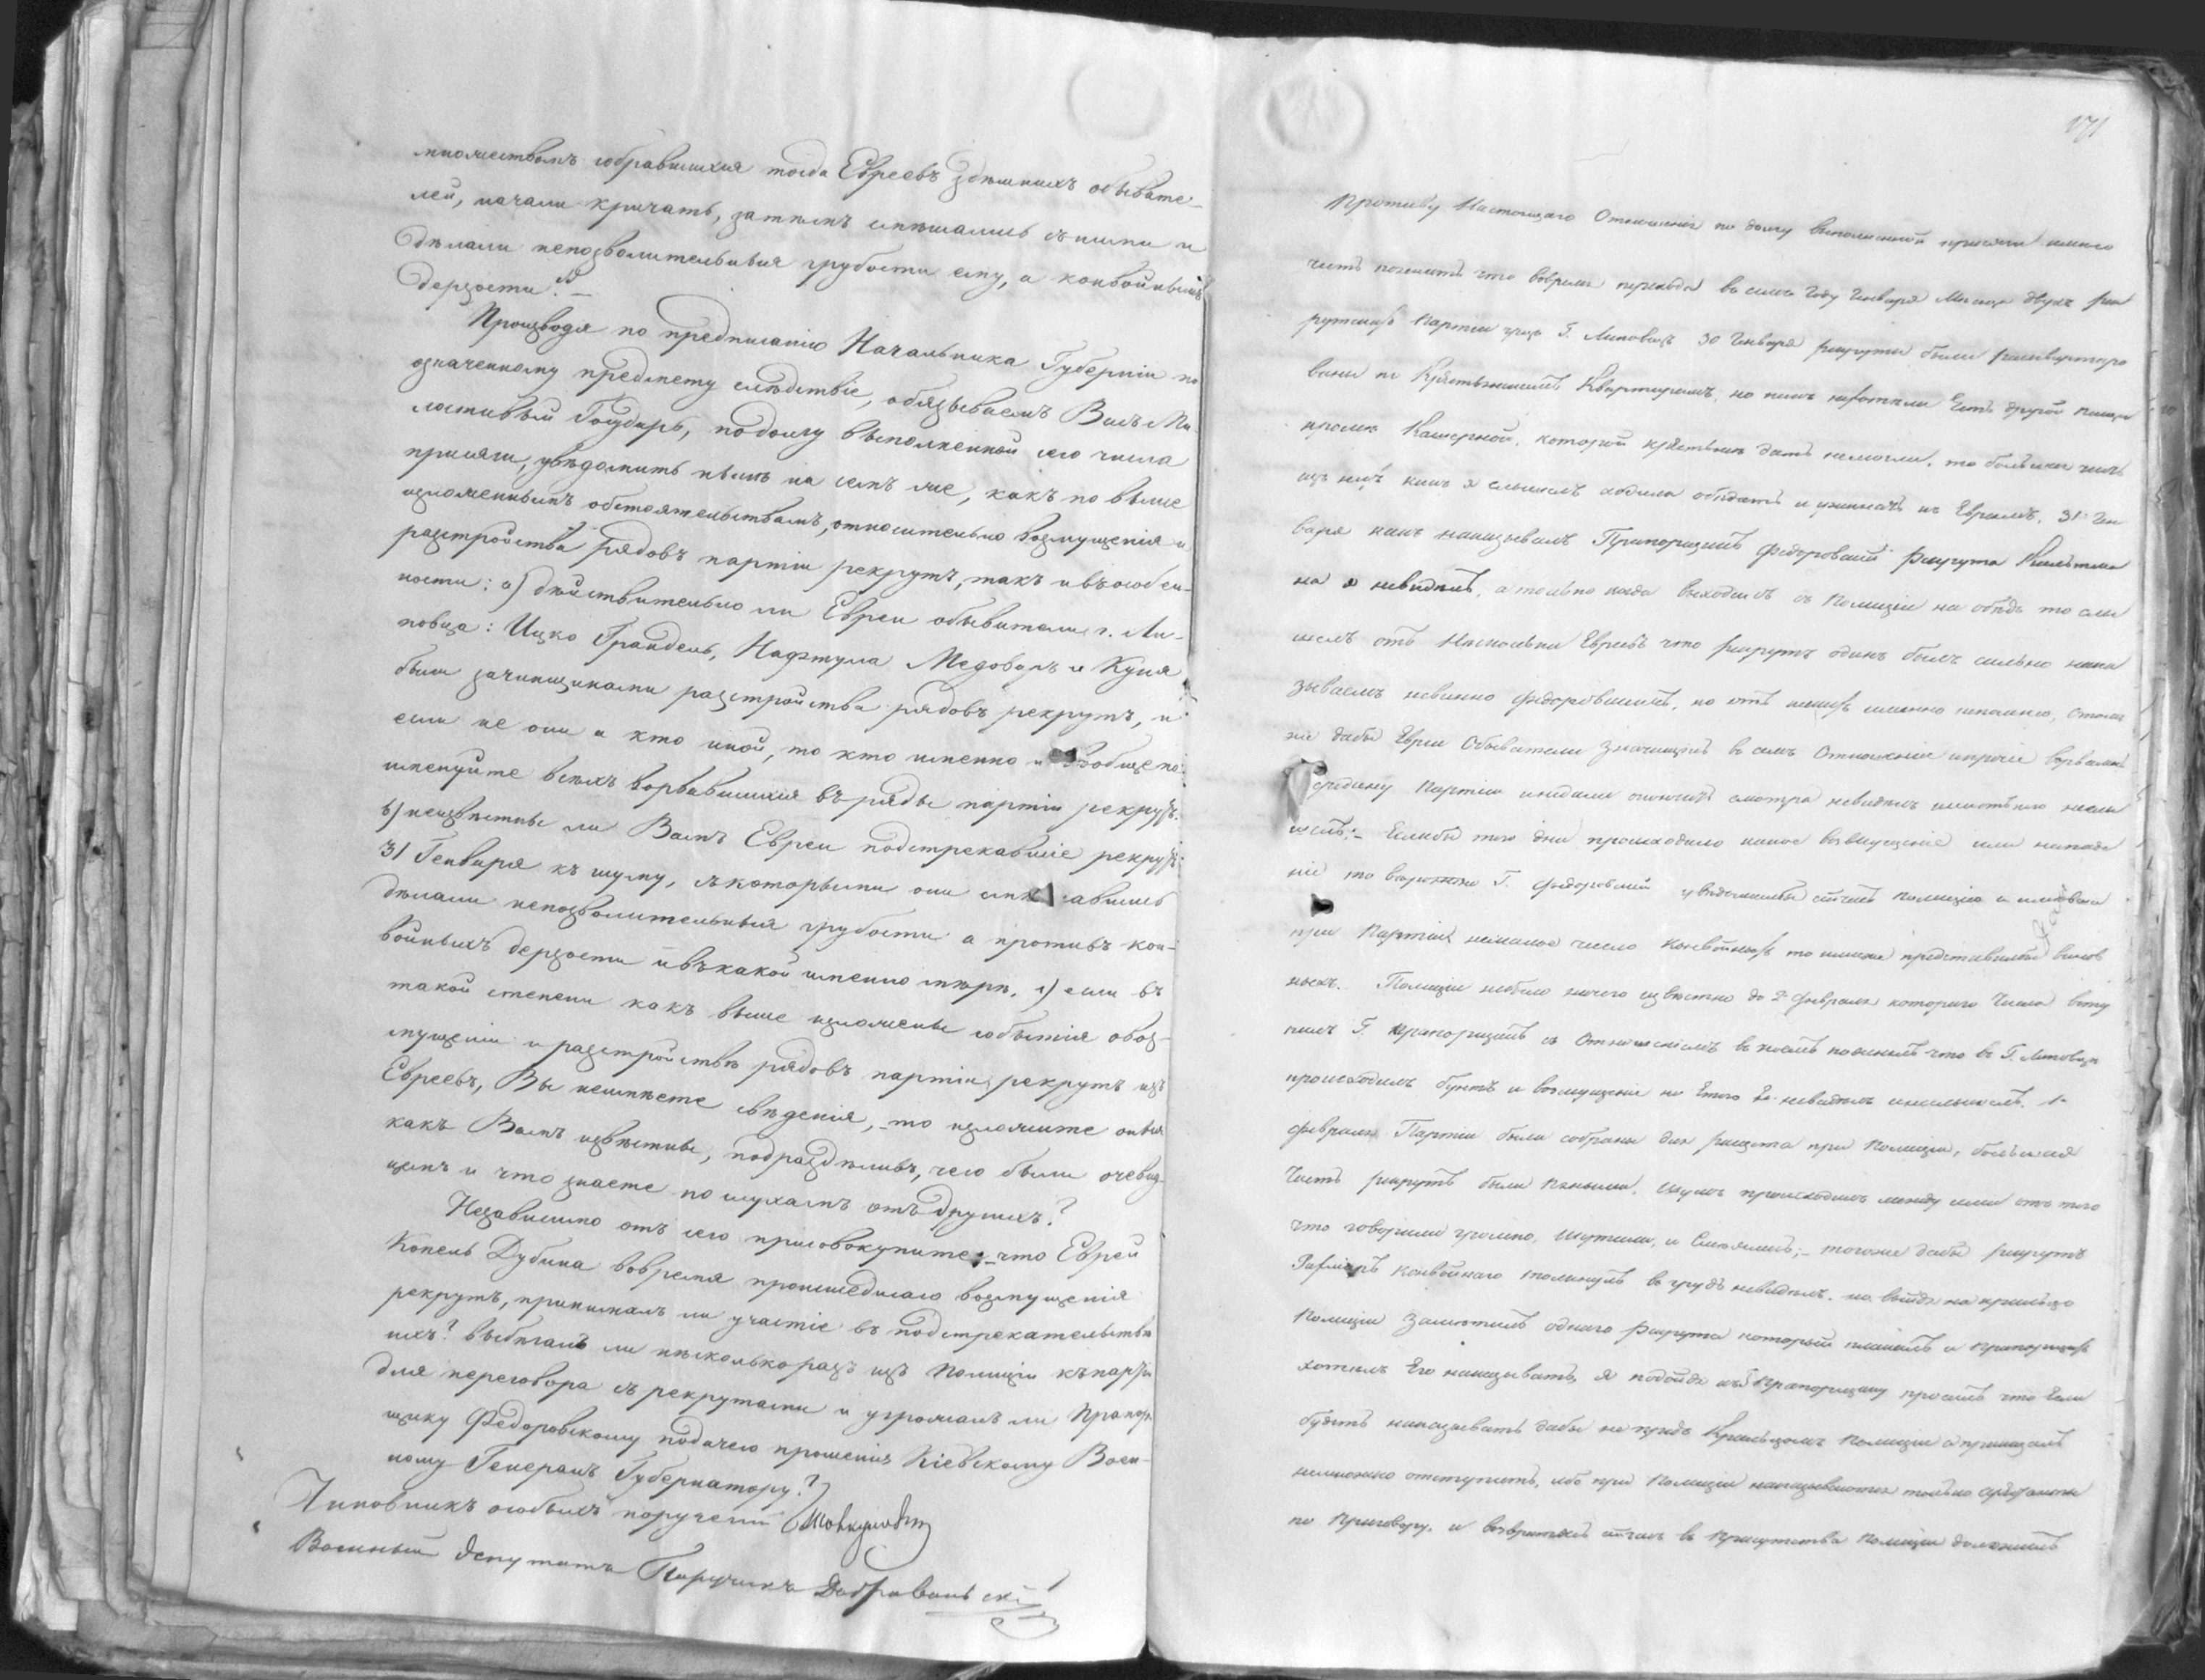 множествомъ собравшихся тогда Евреевъ здешнихъ обывате-
лей, начали кричать, затемъ смешались съ ними и
делали непозволительныя грубости ему, а конвойнымъ
дерзости."–
Производя по предписанію Начальника Губерніи по
означенному предмету следствіе, обязываемъ Васъ Ми-
лостивый Государь, подолгу выполненной сего числа
присяги, уведомить насъ на семъ же, какъ по выше
изложеннымъ обстоятельствамъ, относительно возмущенія и
разстройства рядовъ партіи рекрутъ, такъ и въ особен-
ности: а) действительно ли Евреи обыватели г. Ли-
повца: Ицко Грандель, Нафтула Медоваръ и Куня
были зачинщиками разстройства рядовъ рекрутъ, и
если не они а кто иной, то кто именно и вообще по-
именуйте всехъ ворвавшихся въ ряды партіи рекрутъ.
б) неизвестны ли Вамъ Евреи подстрекавшіе рекрутъ
31 Генваря къ шуму, съ которыми они смешавшись
делали непозволительныя грубости а противъ кон-
войныхъ дерзости и въ какой именно мере. в) если въ
такой степени какъ выше изложены событія о воз-
мущеніи и разстройстве рядовъ партіи рекрутъ изъ
Евреевъ, Вы неимеете сведенія, – то изложите оныя
какъ Вамъ известны, подразделивъ, чего были очевид-
цемъ и что знаете по слухамъ отъ другихъ?
Независимо отъ сего присовокупите: – что Еврей
Копель Дубина вовремя происшедшаго возмущенія
рекрутъ, принималъ ли участіе въ подстрекательстве
ихъ? выбегалъ ли несколько разъ изъ Полиціи къ партіи
для переговора съ рекрутами и угрожалъ ли Прапор-
щику Федоровскому подачею прошенія Кіевскому Воен-
ному Генералъ Губернатору?
Чиновникъ особыхъ порученій
Военный Депутатъ Поручикъ
171
Противу Настоящаго Отношенія по долгу выполненной присяги имею
честь пояснить что вовремя перехода въ семъ Году Генваря Месяца двухъ рек
рутскихъ Партіи чрезъ Г. Липовецъ 30 Генваря рекруты были расквартиро
ваны по Крестьянскимъ Квартирамъ, но какъ нехотели есть другой пищи
кроме Кашерной, которой крестьяне дать немогли, то большая часть
изъ нихъ какъ я слышалъ ходила обедать и ужинать къ Евреямъ. 31 Ген
варя какъ наказывалъ Прапорщикъ Федоровскій рекрута
на я невиделъ, а только когда выходилъ съ Полиціи на обедъ то слы
шалъ отъ Несколько Евреевъ что рекрутъ одинъ былъ сильно нака
зываемъ невинно Федоровскимъ, но отъ какихъ именно непомню,
дабы Евреи Обыватели Значущіеся въ семъ Отношеніи и прочіе ворвались
средину Партіи смотра невиделъ
Еслибы того дня происходило какое возмущеніе или нападе
ніе то вероятно Г. Федоровскій уведомилъ бы
при Партіи немалое число Конвойныхъ то представилъ бы винов
ныхъ. Полиціи небыло ничего известно до 2 февраля котораго Числа всту
пилъ Г. Прапорщикъ съ Отношеніемъ въ коемъ пояснилъ что въ Г. Липовце
происходилъ бунтъ и возмущеніе но этого я невиделъ и неслышалъ. 1
февраля Партіи были собраны для расчета при Полиціи, большая
Часть рекрутъ были пьяными, шумъ происходилъ между ими отъ того
что говорили громко, шутили, и Смеялись; – тогоже дабы рекрутъ
конвойнаго толкнулъ въ грудь невиделъ, но выйдя на крыльцо
Полиціи Заметилъ одного рекрута который плакалъ а Прапорщикъ
хотелъ Его наказывать, я подойдя къ Прапорщику просилъ что Если
будетъ наказывать дабы не предъ Крыльцомъ Полиціи а приказалъ
немножко отступить, ибо при Полиціи наказываются только арестанты
по Приговору, и возвратясь въ Присутствіе Полиціи